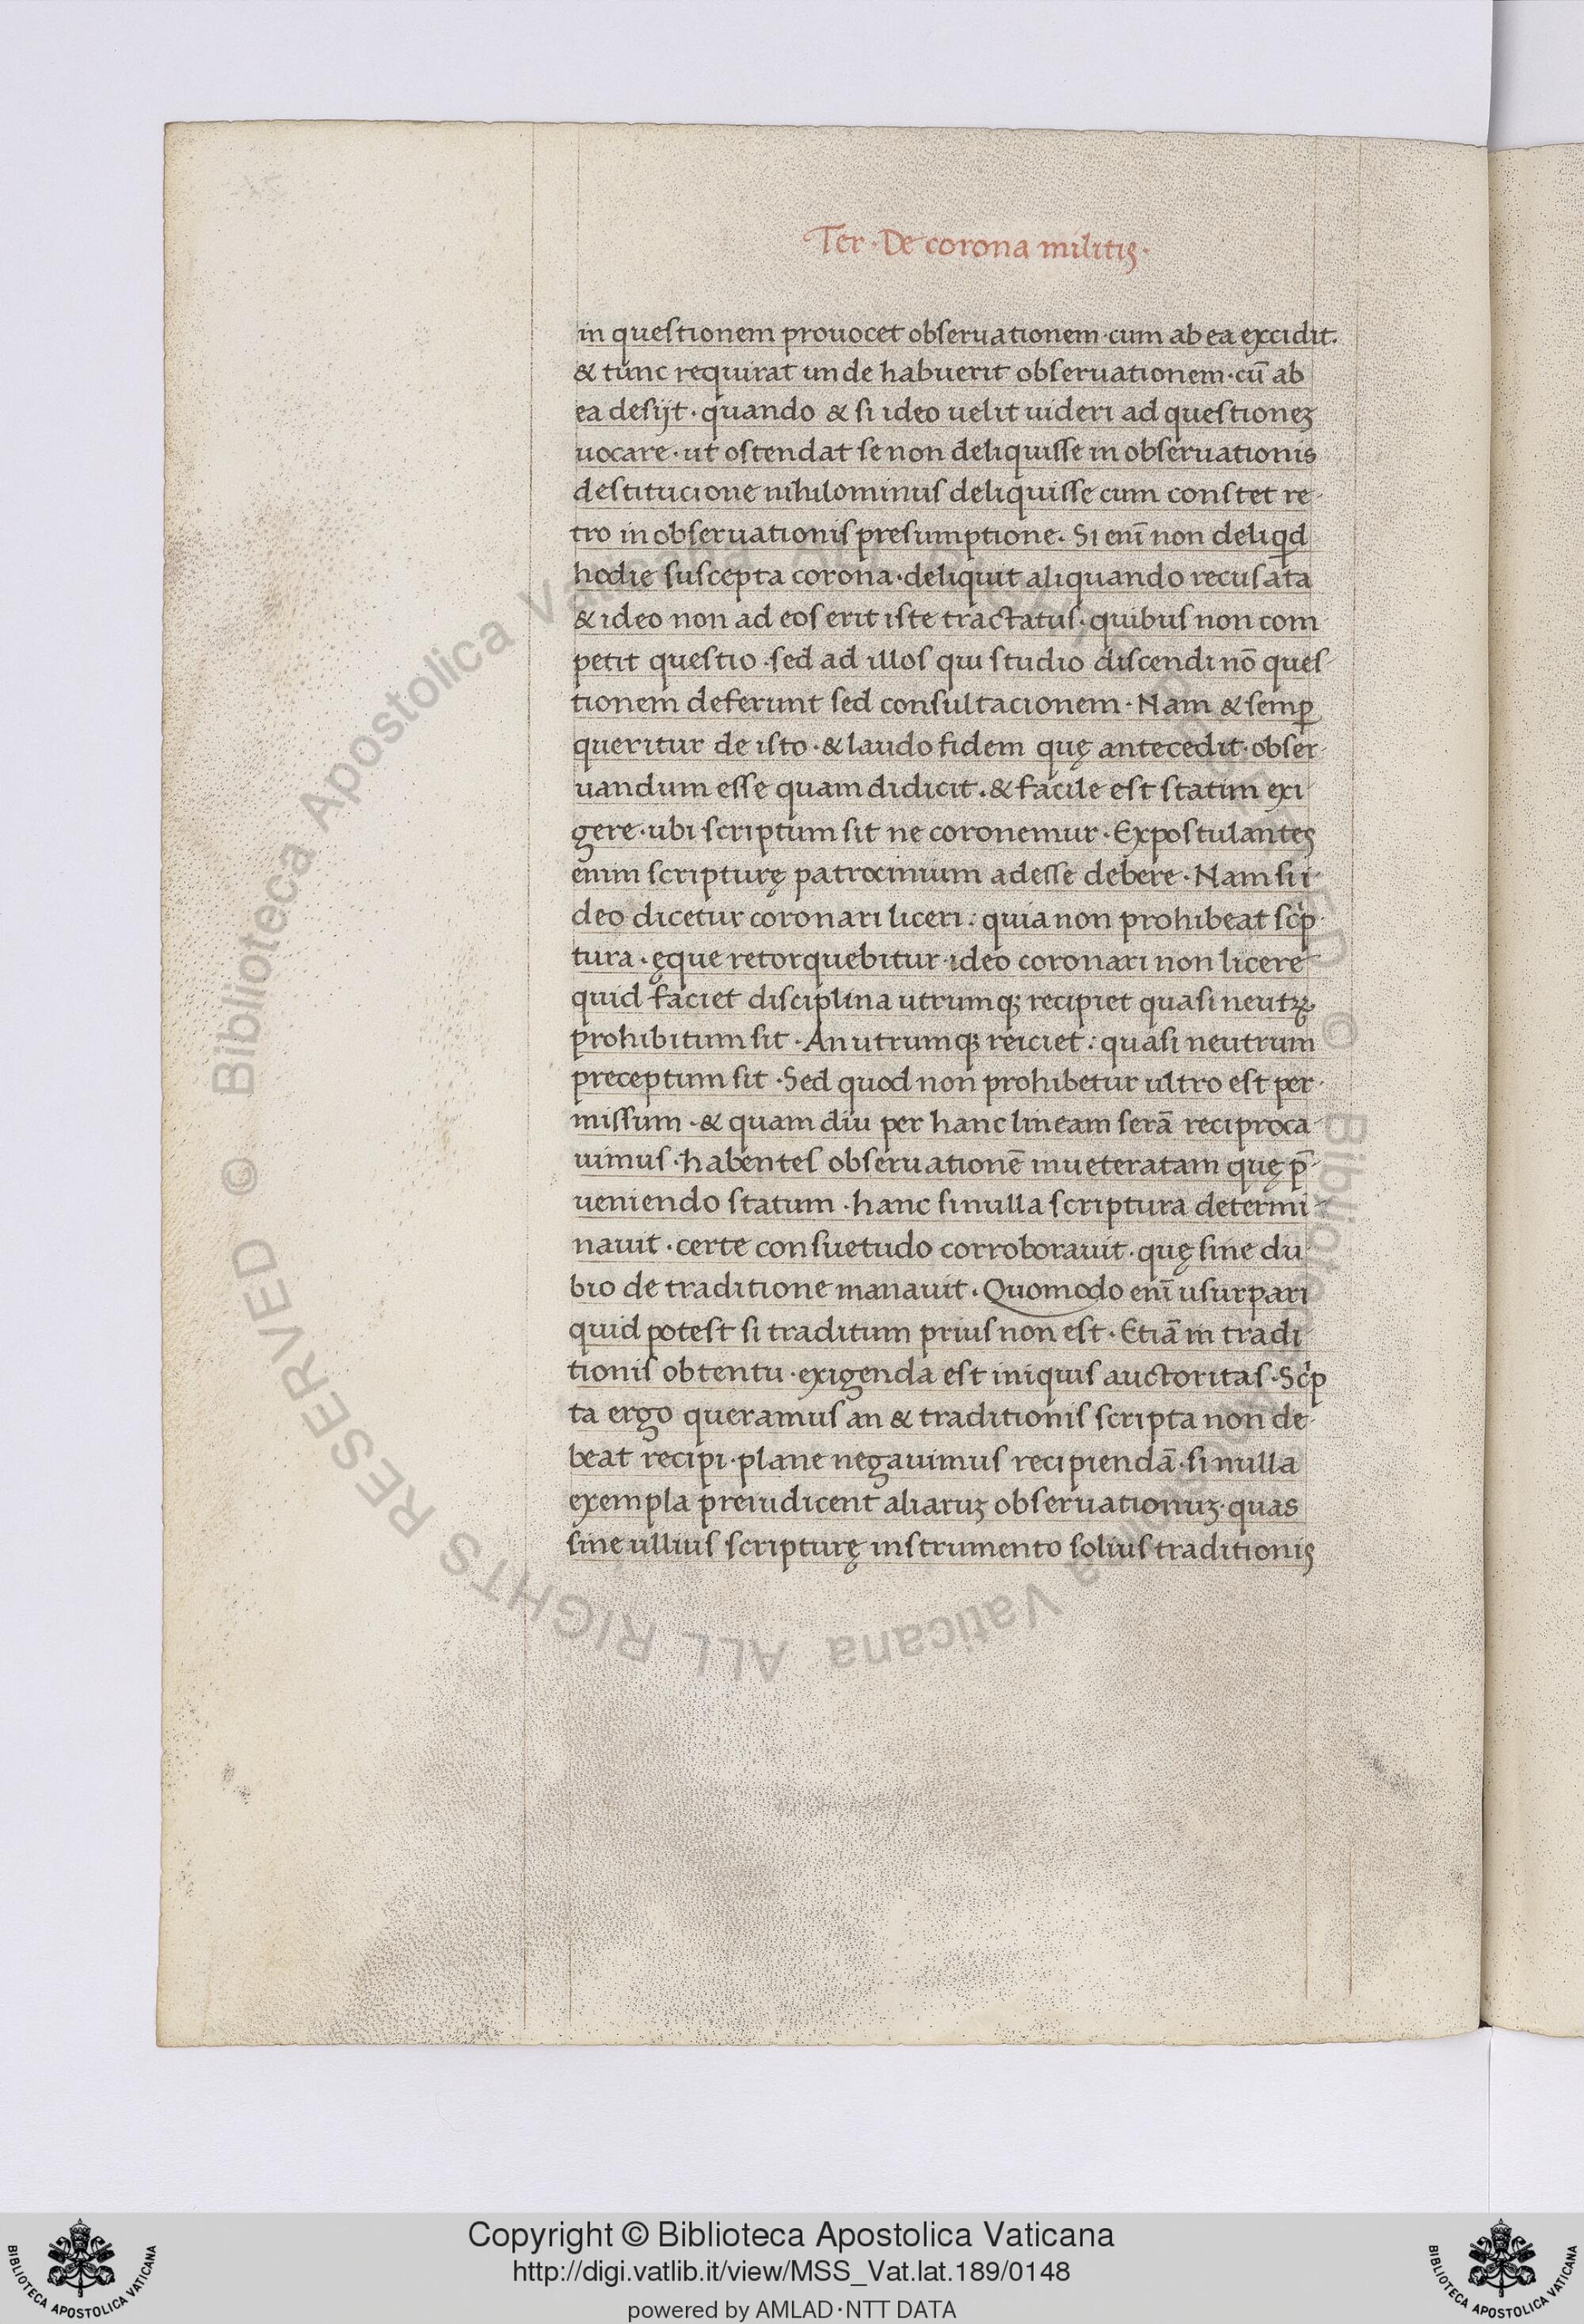 Ter · De corona militis ·
in questionem prouocet obseruationem · cum ab ea excidit.
& tunc requirat unde habuerit obseruationem · cū ab
ea desijt · quando & si ideo uelit uideri ad questioneꝫ
uocare · ut ostendat se non deliquisse in obseruationis
destitucione nihilominus deliquisse cum constet re-
tro in obseruationis presumptione. Si enī non deliqd
hodie suscepta corona · deliquit aliquando recusata
& ideo non ad eos erit iste tractatus · quibus non com
petit questio · sed ad illos qui studio discendi nō ques-
tionem deferunt sed consultacionem · Nam & semꝑ
queritur de isto · & laudo fidem quę antecedit · obser-
uandum esse quam didicit . & facile est statim exi
gere · ubi scriptum sit ne coronemur · Expostulantes
enim scripturę patrocinium adesse debere · Nam si i-
deo dicetur coronari liceri : quia non prohibeat scͥp
tura · ęque retorquebitur · ideo coronari non licere
quid faciet disciplina utrumqꝫ recipiet quasi neutꝝ
prohibitum sit · An utrumqꝫ reiciet : quasi neutrum
preceptum sit · Sed quod non prohibetur ultro est per-
missum · & quam diu per hanc lineam serā reciproca
uimus · habentes obseruationē inueteratam quę p̄-
ueniendo statum · hanc si nulla scriptura determi-
nauit · certe consuetudo corroborauit · quę sine du
bio de traditione manauit . Quomodo enī usurpari
quid potest si traditum prius non est · Etiā in tradi
tionis obtentu · exigenda est iniquis auctoritas · Scͥp
ta ergo queramus an & traditionis scripta non de-
beat recipi · plane negauimus recipiendā · si nulla
exempla preiudicent aliaruꝫ obseruationuꝫ · quas
sine ullius scripturę instrumento solius traditionis
© Biblioteca Apostolica Vaticana ALL RIGHTS RESERVED © Biblioteca Apostolica Vaticana ALL RIGHTS RESERVED
Copyright © Biblioteca Apostolica Vaticana
http://digi.vatlib.it/view/MSS_Vat.lat.189/0148
powered by AMLAD·NTT DATA
BIBLIOTECA APOSTOLICA VATICANA
BIBLIOTECA APOSTOLICA VATICANA